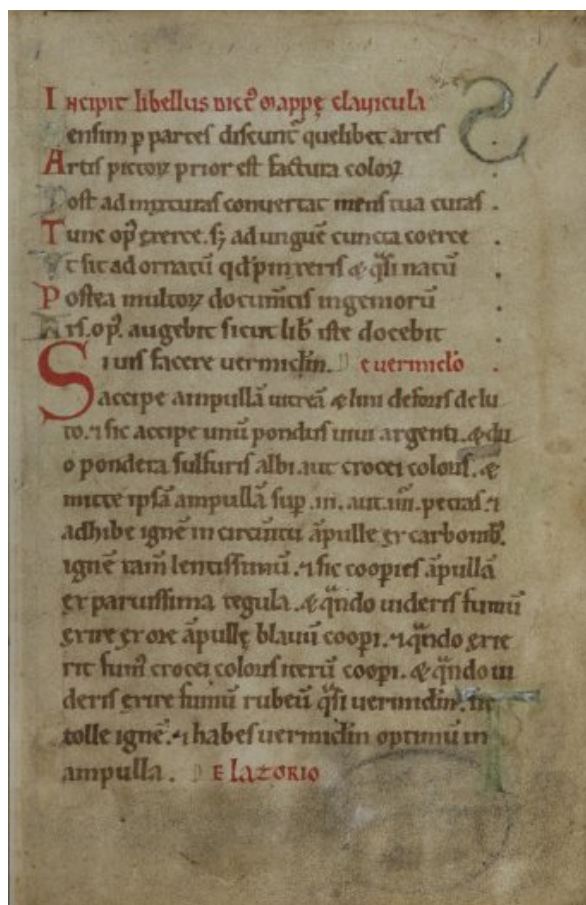 Incipit libellus dict᷒ Mappę clauicula
Sensim p̲ partes discunt᷒ quelibet artes
Artis pictoꝝ prior est factura coloꝝ
Post ad mixturas conuertat mens tua curas .
Tunc op᷒ exerce . sꝫ ad unguē cuncta coerce
Vt sit ad ornatū qd̓ pinxeris ⁊ q̓si natū
Postea multoꝝ documtis ingeniorū
Ars . op᷒ . augebit sicut lib̓ iste docebit
Si uis facere uermiclm̄ . De uermiclo
accipe ampullā uitreā & lini deforis de lu
to . ⁊ sic accipe unū pondus uiui argenti . & du
o pondera sulfuris albi . aut crocei coloris . &
mitte ipsā ampullā sup̲ . iii . aut . iiii . petras . ⁊
adhibe ignē in circuitu āpulle ex carbonib᷒ .
ignē tam̄ lentissimū . ⁊ sic cooperies āpullā
ex paruissima tegula . & qn̄do uideris fumū
exire ex ore āpullę blauiū coopi . ⁊ qn̄do exie
rit fum᷒ crocei coloris iterū coopi . & qn̄do ui
deris exire fumū rubeū q̓si uermiclin̄ . sic
tolle ignē . ⁊ habes uermiclm̄ optimū in
ampulla . DE lazorio